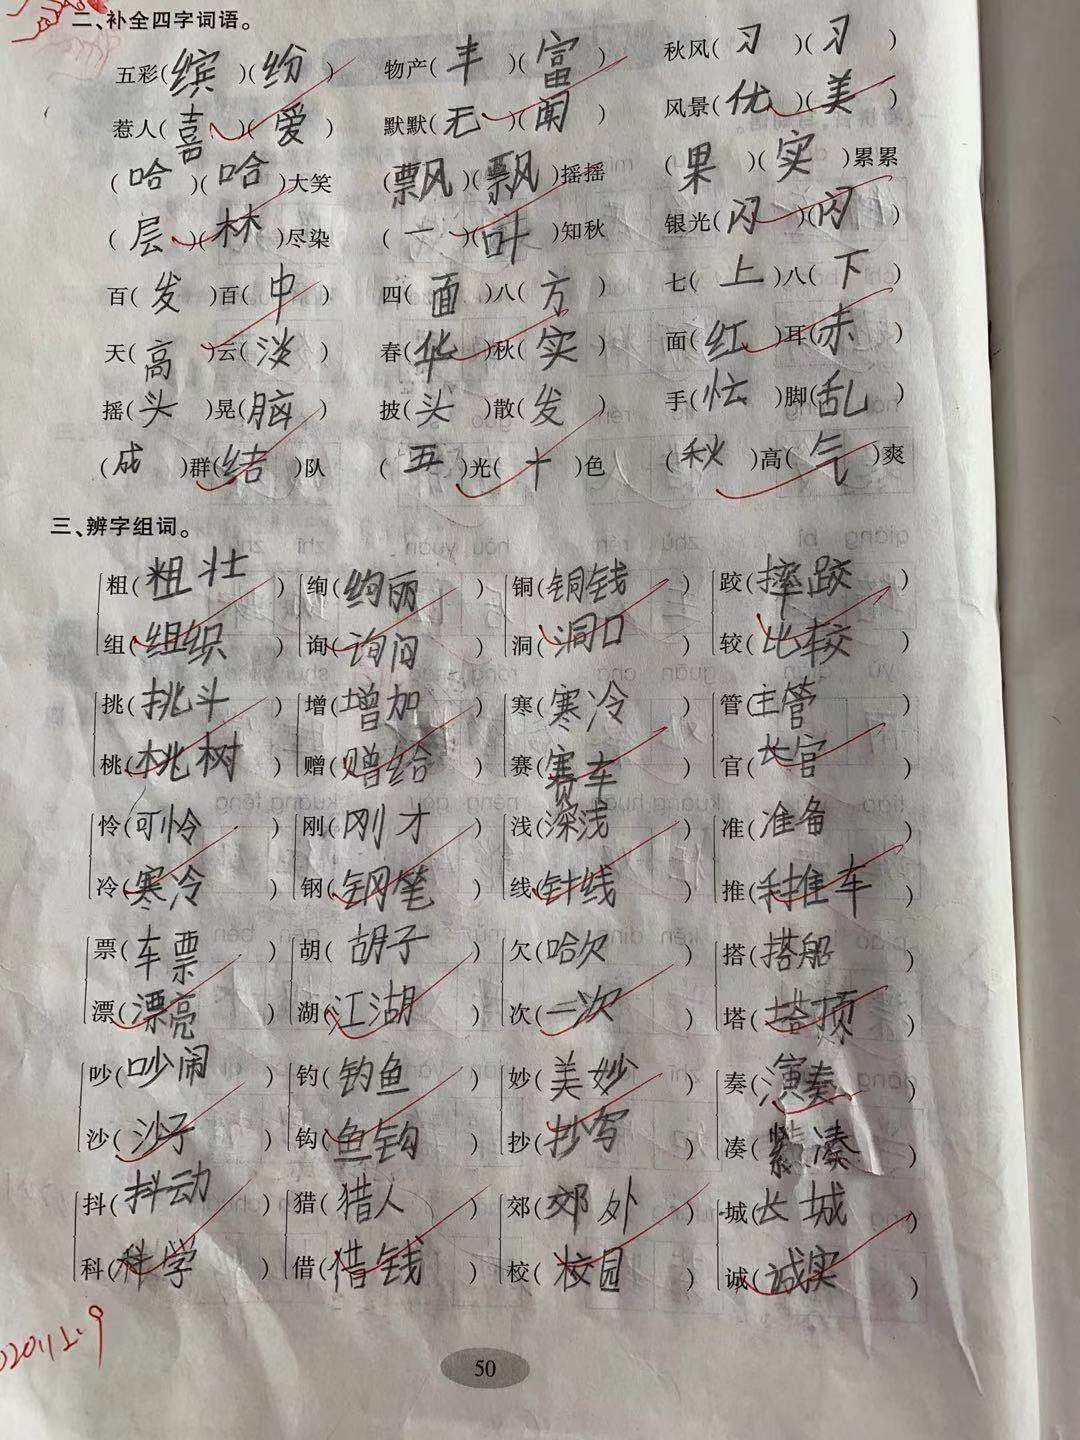 二、补全四字词语。
五彩(缤)(纷) 物产(丰)(富) 秋风(习)(习)
惹人(喜)(爱) 默默(无)(闻) 风景(优)(美)
(哈)(哈)大笑 (飘)(飘)摇摇 (果)(实)累累
(层)(林)尽染 (一)(叶)知秋 银光(闪)(闪)
百(发)百(中) 四(面)八(方) 七(上)八(下)
天(高)云(淡) 春(华)秋(实) 面(红)耳(赤)
摇(头)晃(脑) 披(头)散(发) 手(忙)脚(乱)
(成)群(结)队 (五)光(十)色 (秋)高(气)爽
三、辨字组词。
粗(粗壮) 绚(绚丽) 铜(铜钱) 跤(摔跤)
组(组织) 询(询问) 洞(洞口) 较(比较)
挑(挑斗) 增(增加) 寒(寒冷) 管(主管)
桃(桃树) 赠(赠给) 赛(赛车) 官(长官)
怜(可怜) 刚(刚才) 浅(深浅) 准(准备)
冷(寒冷) 钢(钢笔) 线(针线) 推(手推车)
票(车票) 胡(胡子) 欠(哈欠) 搭(搭船)
漂(漂亮) 湖(江湖) 次(一次) 塔(塔顶)
吵(吵闹) 钓(钓鱼) 妙(美妙) 奏(演奏)
沙(沙子) 钩(鱼钩) 抄(抄写) 凑(紧凑)
抖(抖动) 猎(猎人) 郊(郊外) 城(长城)
科(科学) 借(借钱) 校(校园) 诚(诚实)
50